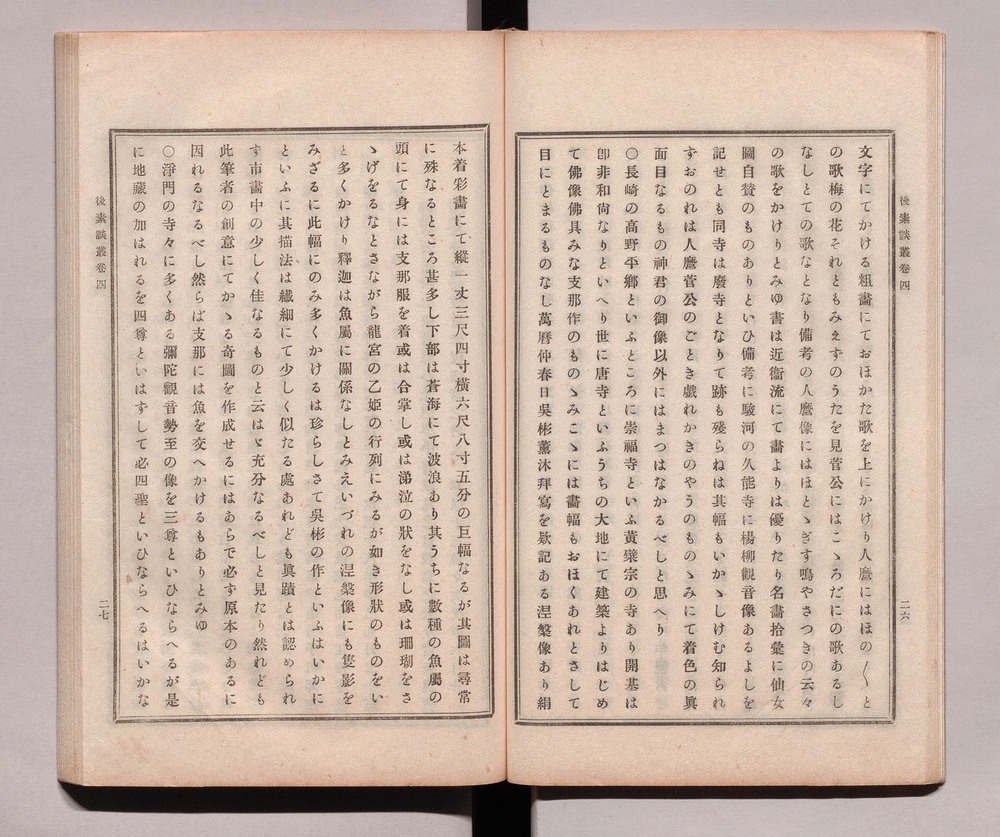 後素談叢卷四
二六
文字にてかける粗畵にておほかた歌を上にかけり人麿にはほの〱と
の歌梅の花それともみえすのうたを見菅公にはこゝろだにの歌あるし
なしとての歌なとなり備考の人麿像にはほとゝぎす鳴やさつきの云々
の歌をかけりとみゆ書は近衞流にて畵よりは優りたり名畵拾彙に仙女
圖自賛のものありといひ備考に駿河の久能寺に楊柳觀音像あるよしを
記せとも同寺は廢寺となりて跡も殘らねは其幅もいかゝしけむ知られ
すおのれは人麿菅公のごとき戯れかきのやうのものゝみにて着色の眞
面目なるもの神君の御像以外にはまつはなかるべしと思へり
〇長崎の高野平鄕といふところに崇福寺といふ黄檗宗の寺あり開基は
卽非和尙なりといへり世に唐寺といふうちの大地にて建築よりはじめ
て佛像佛具みな支那作のものゝみこゝには畵幅もおほくあれとさして
目にとまるものなし萬曆仲春日吳彬薰沐拜寫を欵記ある涅槃像あり絹
本着彩畵にて縱一丈三尺四寸横六尺八寸五分の巨幅なるが其圖は尋常
に殊なるところ甚多し下部は蒼海にて波浪あり其うちに數種の魚屬の
頭にて身には支那服を着或は合掌し或は涕泣の狀をなし或は珊瑚をさ
ゝげをるなとさながら龍宮の乙姬の行列にみるが如き形狀のものをい
と多くかけり釋迦は魚屬に關係なしとみえいづれの涅槃像にも隻影を
みざるに此幅にのみ多くかけるは珍らしさて吳彬の作といふはいかに
といふに其描法は纎細にて少しく似たる處あれども眞蹟とは認められ
す市畵中の少しく佳なるものと云はゞ充分なるべしと見たり然れども
此筆者の創意にてかゝる奇圖を作成せるにはあらで必す原本のあるに
因れるなるべし然らば支那には魚を交へかけるもありとみゆ
〇淨門の寺々に多くある彌陀觀音勢至の像を三尊といひならへるが是
に地藏の加はれるを四尊といはすして必四聖といひならへるはいかな
後素談叢卷四
二七